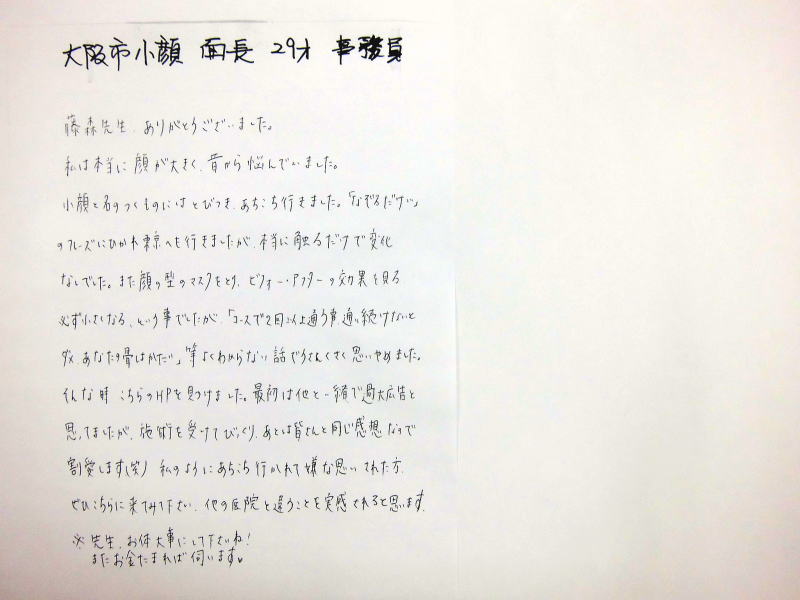 大阪市小顔 面長 29才 事務員
藤森先生、ありがとうございました。
私は本当に顔が大きく、昔から悩んでいました。
小顔と名のつくものにはとびつき、あちこち行きました。「なぞるだけ」
のフレーズにひかれ東京へも行きましたが、本当に触るだけで変化
なしでした。また顔の型のマスクをとり、ビフォー・アフターの効果を見る
必ず小さくなる、という事でしたが、「コースで2回以上通う事、通い続けないと
ダメ、あなたの骨はかたい」等よくわからない話でうさんくさく思いやめました。
そんな時 こちらのHPを見つけました。最初は他と一緒で過大広告と
思ってましたが、施術を受けてびっくり、あとは皆さんと同じ感想なので
割愛します(笑) 私のようにあちこち行かれて嫌な思いされた方、
ぜひこちらに来てみて下さい、他の医院と違うことを実感されると思います。
※先生、お体大事にして下さいね!
またお金たまれば伺います。